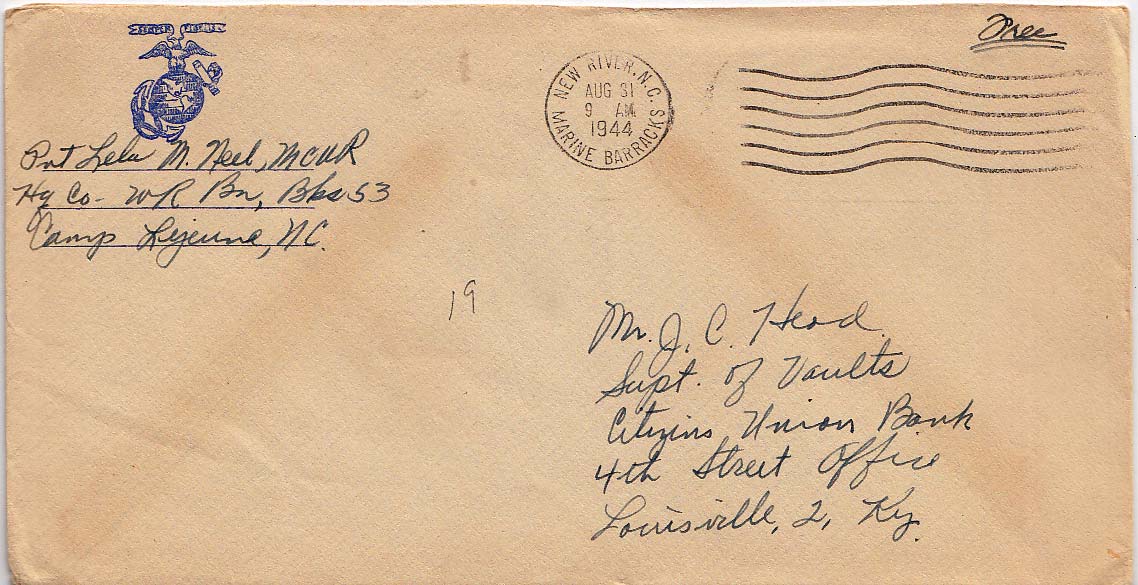 SEMPER FIDELIS
Free
NEW RIVER, N.C.
AUG 31
9 AM
1944
MARINE BARRACKS
Pvt Lela M. Neel, MCWR
Hq Co - WR Bn, Bks 53
Camp Lejeune, NC.
19
Mr. J. C. Head
Supt. of Vaults
Citizens Union Bank
4th Street Office
Louisville, 2, Ky.